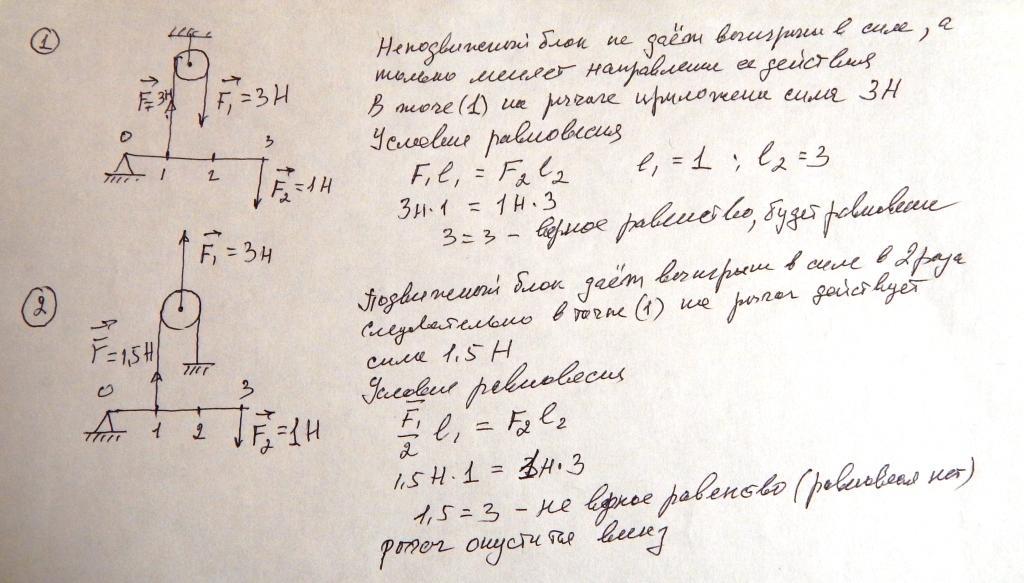 1
F=3Н
F₁=3Н
0
1
2
3
F₂=1Н
Неподвижный блок не даёт выигрыш в силе, а
только меняет направление её действия
В точке (1) на рычаге приложена сила 3Н
Условие равновесия
F₁l₁ = F₂l₂ l₁=1; l₂=3
3Н·1 = 1Н·3
3=3 – верное равенство, будет равновесие
2
F₁=3Н
F=1,5Н
0
1
2
3
F₂=1Н
Подвижный блок даёт выигрыш в силе в 2 раза
следовательно в точке (1) на рычаг действует
сила 1,5Н
Условие равновесия
F₁/2 l₁ = F₂l₂
1,5Н·1 = 1Н·3
1,5=3 – не верное равенство (равновесия нет)
рычаг опустится вниз